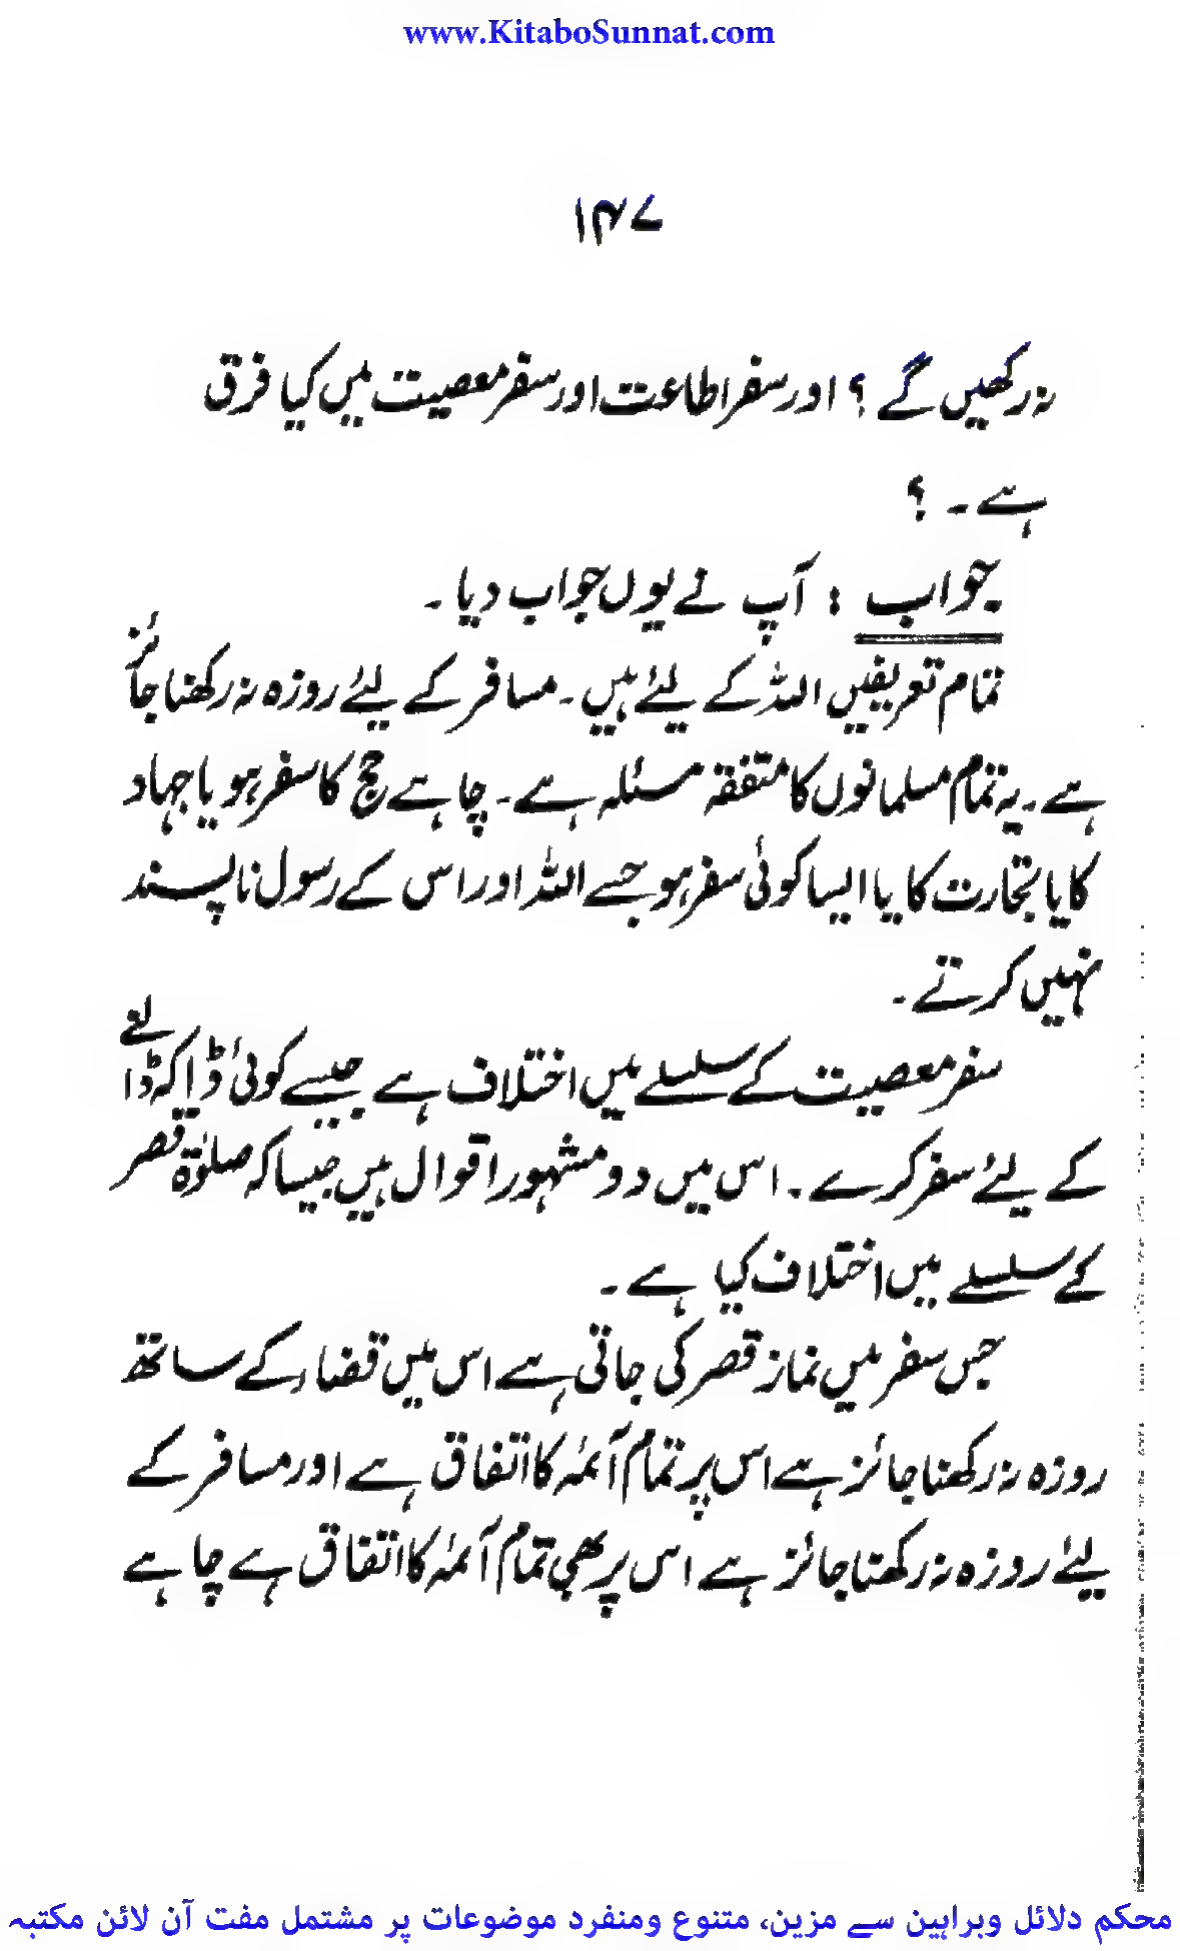 www.KitaboSunnat.com
۱۴۷
نہ رکھیں گے ؟ اور سفر اطاعت اور سفر معصیت میں کیا فرق
ہے ۔ ؟
جواب : آپ نے یوں جواب دیا ۔
تمام تعریفیں اللہ کے لیئے ہیں ۔ مسافر کے لیئے روزہ نہ رکھنا جائز
ہے ۔ یہ تمام مسلمانوں کا متفقہ مسئلہ ہے ۔ چاہے حج کا سفر ہو یا جہاد
کا یا تجارت کا یا ایسا کوئی سفر ہو جسے اللہ اور اس کے رسول ناپسند
نہیں کرتے ۔
سفر معصیت کے سلسلے میں اختلاف ہے جیسے کوئی ڈاکہ ڈالنے
کے لیئے سفر کرے ۔ اس میں دو مشہور اقوال ہیں جیسا کہ صلوٰۃ قصر
کے سلسلے میں اختلاف کیا ہے ۔
جس سفر میں نماز قصر کی جاتی ہے اس میں قضاء کے ساتھ
روزہ نہ رکھنا جائز ہے اس پر تمام آئمہ کا اتفاق ہے اور مسافر کے
لیئے روزہ نہ رکھنا جائز ہے اس پر بھی تمام آئمہ کا اتفاق ہے چاہے
محکم دلائل وبراہین سے مزین، متنوع ومنفرد موضوعات پر مشتمل مفت آن لائن مکتبہ